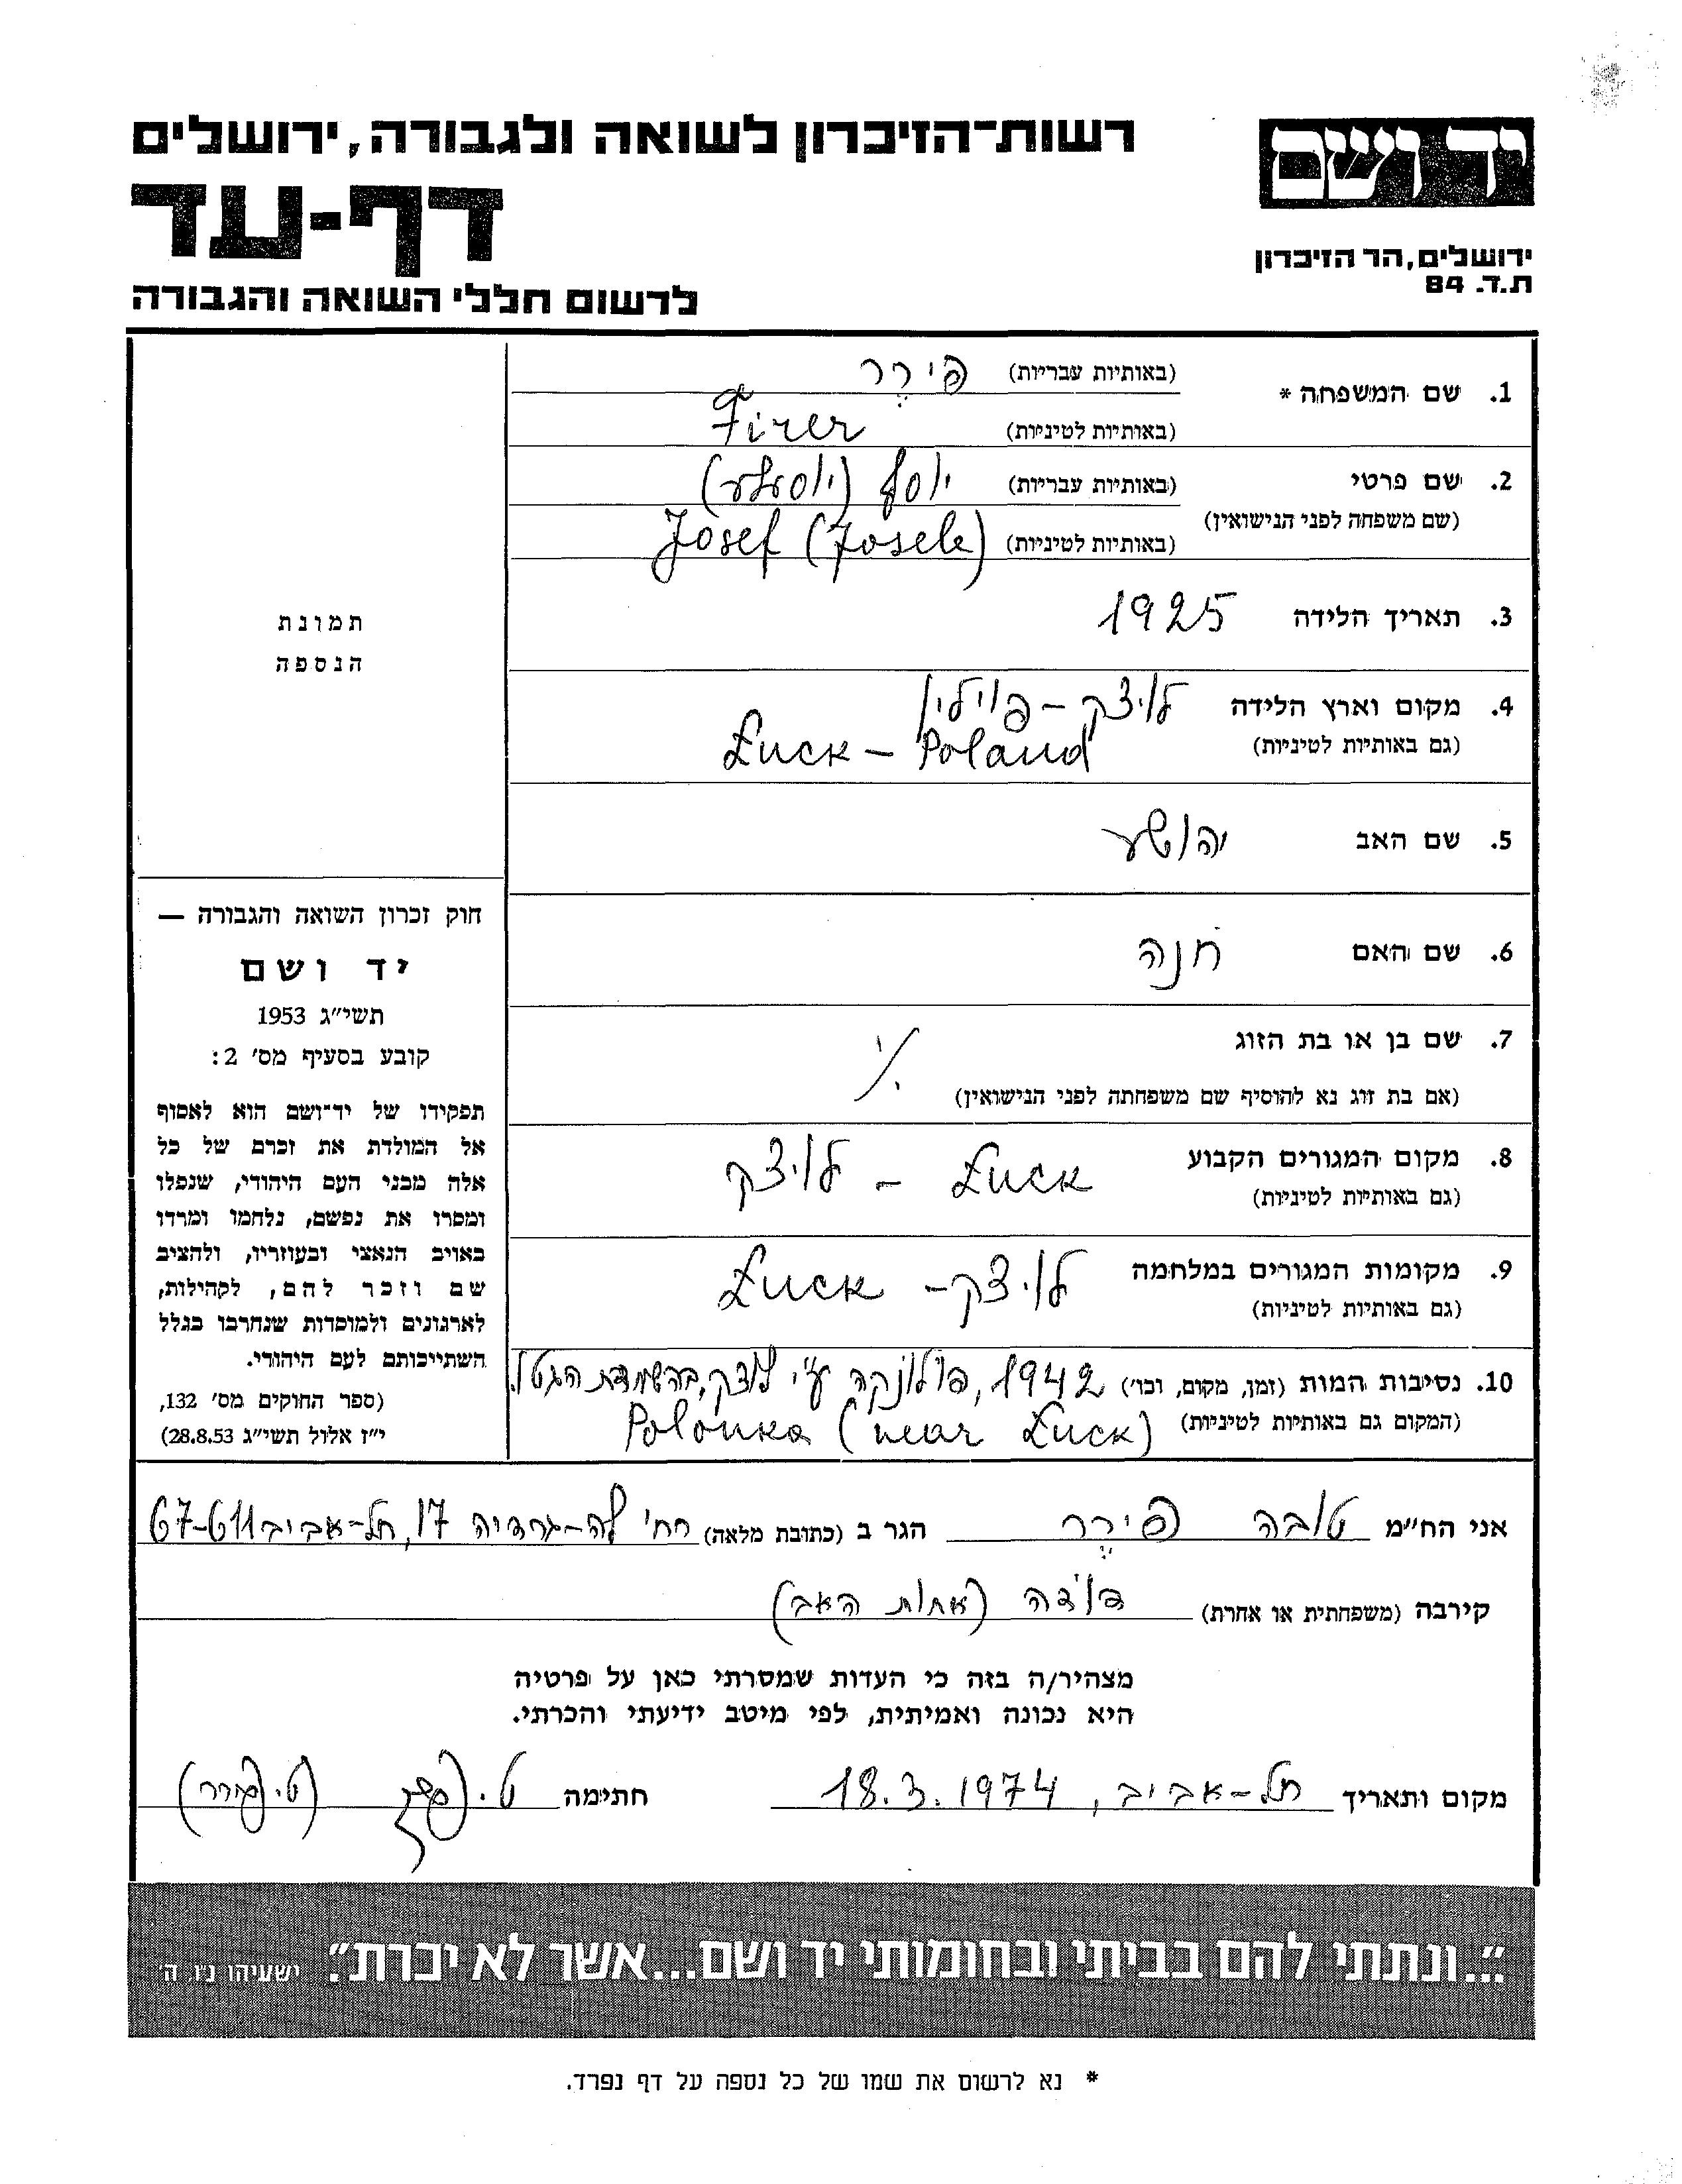 יד ושם
ירושלים, הר הזיכרון
ת.ד. 84
רשות־הזיכרון לשואה ולגבורה, ירושלים
דף-עד
לרשום חללי השואה והגבורה
1. שם המשפחה * (באותיות עבריות) פירר
(באותיות לטיניות) Firer
2. שם פרטי (באותיות עבריות) יוסף (יוסלע)
(שם משפחה לפני הנישואין) (באותיות לטיניות) Josef (Josele)
3. תאריך הלידה 1925
4. מקום וארץ הלידה לויצק – פוילין
(גם באותיות לטיניות) Łuck – Poland
5. שם האב יהושע
6. שם האם חנה
7. שם בן או בת הזוג ./.
(אם בת זוג נא להוסיף שם משפחתה לפני הנישואין)
8. מקום המגורים הקבוע Łuck – לויצק
(גם באותיות לטיניות)
9. מקומות המגורים במלחמה לויצק – Łuck
(גם באותיות לטיניות)
10. נסיבות המות (זמן, מקום, וכו') 1942, פולונקה ע"י לוצק, בהשמדת הגטו.
(המקום גם באותיות לטיניות) Polonka (near Łuck)
תמונת
הנספה
חוק זכרון השואה והגבורה —
יד ושם
תשי"ג 1953
קובע בסעיף מס' 2:
תפקידו של יד־ושם הוא לאסוף
אל המולדת את זכרם של כל
אלה מבני העם היהודי, שנפלו
ומסרו את נפשם, נלחמו ומרדו
באויב הנאצי ובעוזריו, ולהציב
שם וזכר להם, לקהילות,
לארגונים ולמוסדות שנחרבו בגלל
השתייכותם לעם היהודי.
(ספר החוקים מס' 132,
י"ז אלול תשי"ג 28.8.53)
אני הח"מ טובה פירר הגר ב (כתובת מלאה) רח' לה-גרדיה 17, תל-אביב 67-611
קירבה (משפחתית או אחרת) דודה (אחות האב)
מצהיר/ה בזה כי העדות שמסרתי כאן על פרטיה
היא נכונה ואמיתית, לפי מיטב ידיעתי והכרתי.
מקום ותאריך תל-אביב, 18.3.1974 חתימה ט. פירר (ט. פירר)
"...ונתתי להם בביתי ובחומותי יד ושם...אשר לא יכרת". ישעיהו נ"ו, ה'
* נא לרשום את שמו של כל נספה על דף נפרד.